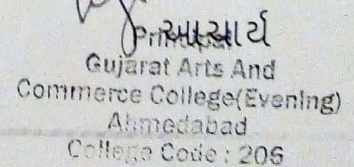 આચાર્ય
Principal
Gujarat Arts And
Commerce College(Evening)
Ahmedabad
College Code : 206